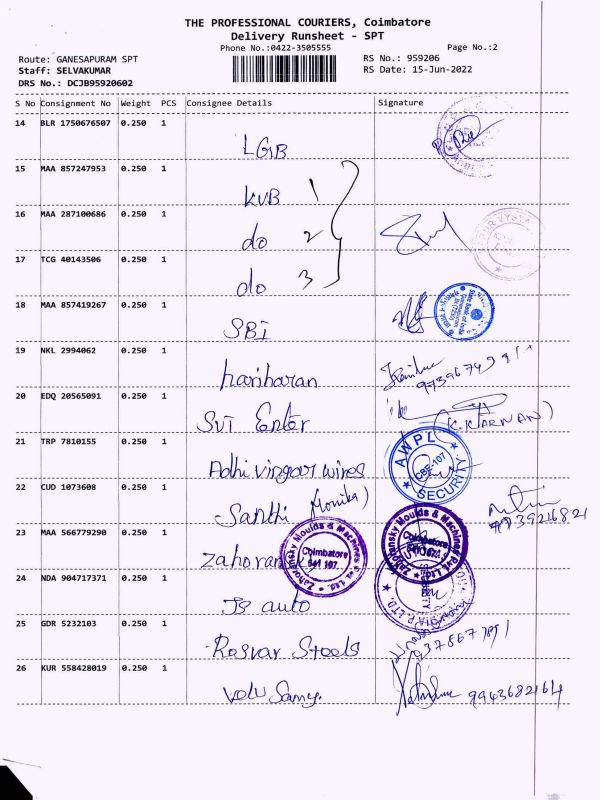 THE PROFESSIONAL COURIERS, Coimbatore
Delivery Runsheet - SPT
Phone No.:0422-3505555
Page No.:2
Route: GANESAPURAM SPT
RS No.: 959206
Staff: SELVAKUMAR
RS Date: 15-Jun-2022
DRS No.: DCJB95920602
S No Consignment No Weight PCS Consignee Details Signature
14 BLR 1750676507 0.250 1
LGB
15 MAA 857247953 0.250 1
KVB 1
16 MAA 287100686 0.250 1
do 2
17 TCG 40143506 0.250 1
do 3
18 MAA 857419267 0.250 1
SBI
State Bank of India
19 NKL 2994062 0.250 1
hariharan
20 EDQ 20565091 0.250 1
Sri Enter
(K.KARNAN)
21 TRP 7810155 0.250 1
Adhi vingar wires
AWPL
CBE-107
SECURITY
22 CUD 1073608 0.250 1
Santhi (Monika)
23 MAA 566779290 0.250 1
Zahoransky
Zahoransky Moulds & Machines Pvt. Ltd.
Coimbatore
641 107.
Zahoransky Moulds & Machines Pvt. Ltd.
Coimbatore
24 NDA 904717371 0.250 1
JB auto
25 GDR 5232103 0.250 1
Rosvar Steels
26 KUR 558428019 0.250 1
Velu Samy.
9943682164